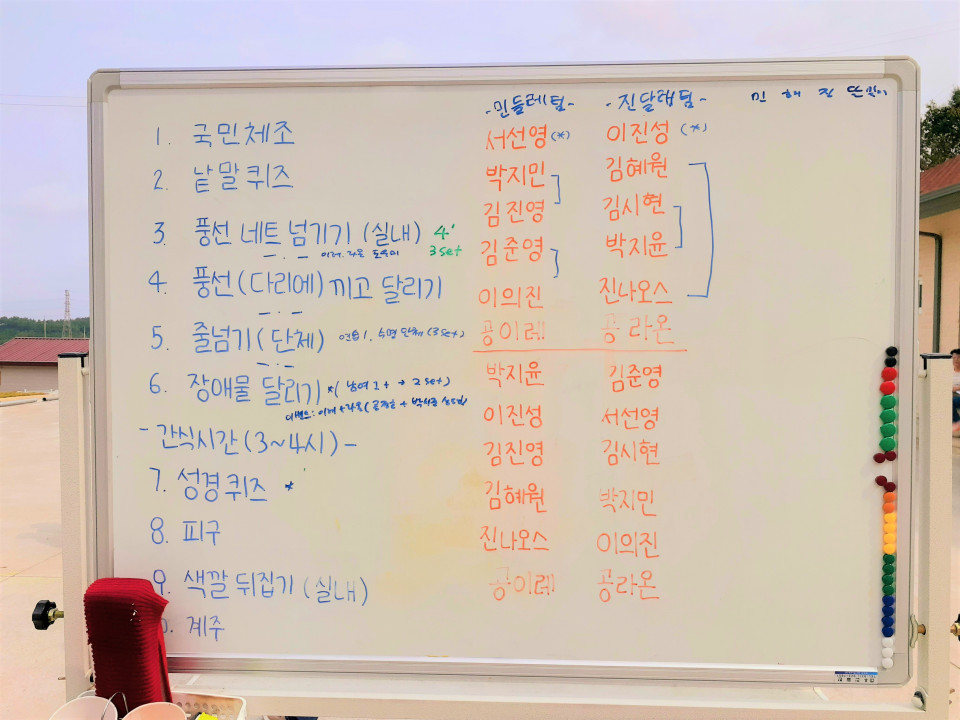 1. 국민체조
2. 낱말퀴즈
3. 풍선 네트 넘기기 (실내) 4' 3set
4. 풍선(다리에) 끼고 달리기
5. 줄넘기(단체) (3set)
6. 장애물 달리기 *( → 2set)
- 간식시간 (3~4시) -
7. 성경퀴즈 *
8. 피구
9. 색깔 뒤집기 (실내)
계주
-민들레팀- -진달래팀-
서선영(*) 이진성(*)
박지민 김혜원
김진영 김시현
김준영 박지윤
이의진 진나오스
공이레 공라온
박지윤 김준영
이진성 서선영
김진영 김시현
김혜원 박지민
진나오스 이의진
공이레 공라온